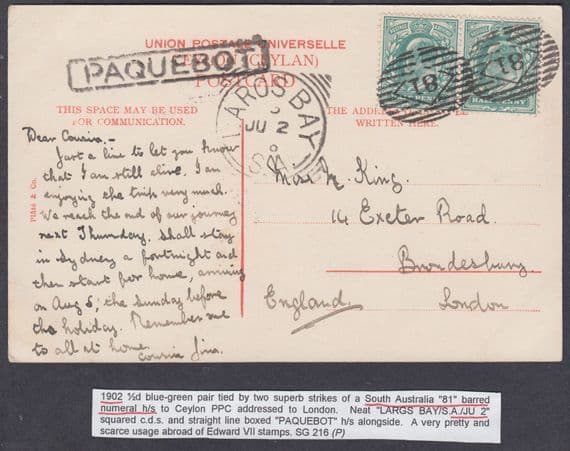 UNION POSTALE UNIVERSELLE
(CEYLAN)
POSTCARD
PAQUEBOT
THIS SPACE MAY BE USED
FOR COMMUNICATION.
THE ADDRESS
WRITTEN HERE.
LARGS BAY
JU 2
S.A
81
81
HALFPENNY
Plâté & Co.
Dear Cousin, -
Just a line to let you know
that I am still alive. I am
enjoying the trip very much.
We reach the end of our journey
next Thursday. Shall stay
in Sydney a fortnight and
then start for home, arriving
on Aug 5, the Sunday before
the holiday. Remember me
to all at home.
Cousin
King.
14 Exeter Road.
Brondesbury.
London
England.
1902 ½d blue-green pair tied by two superb strikes of a South Australia "81" barred
numeral h/s to Ceylon PPC addressed to London. Neat "LARGS BAY/S.A./JU 2"
squared c.d.s. and straight line boxed "PAQUEBOT" h/s alongside. A very pretty and
scarce usage abroad of Edward VII stamps. SG 216 (P)